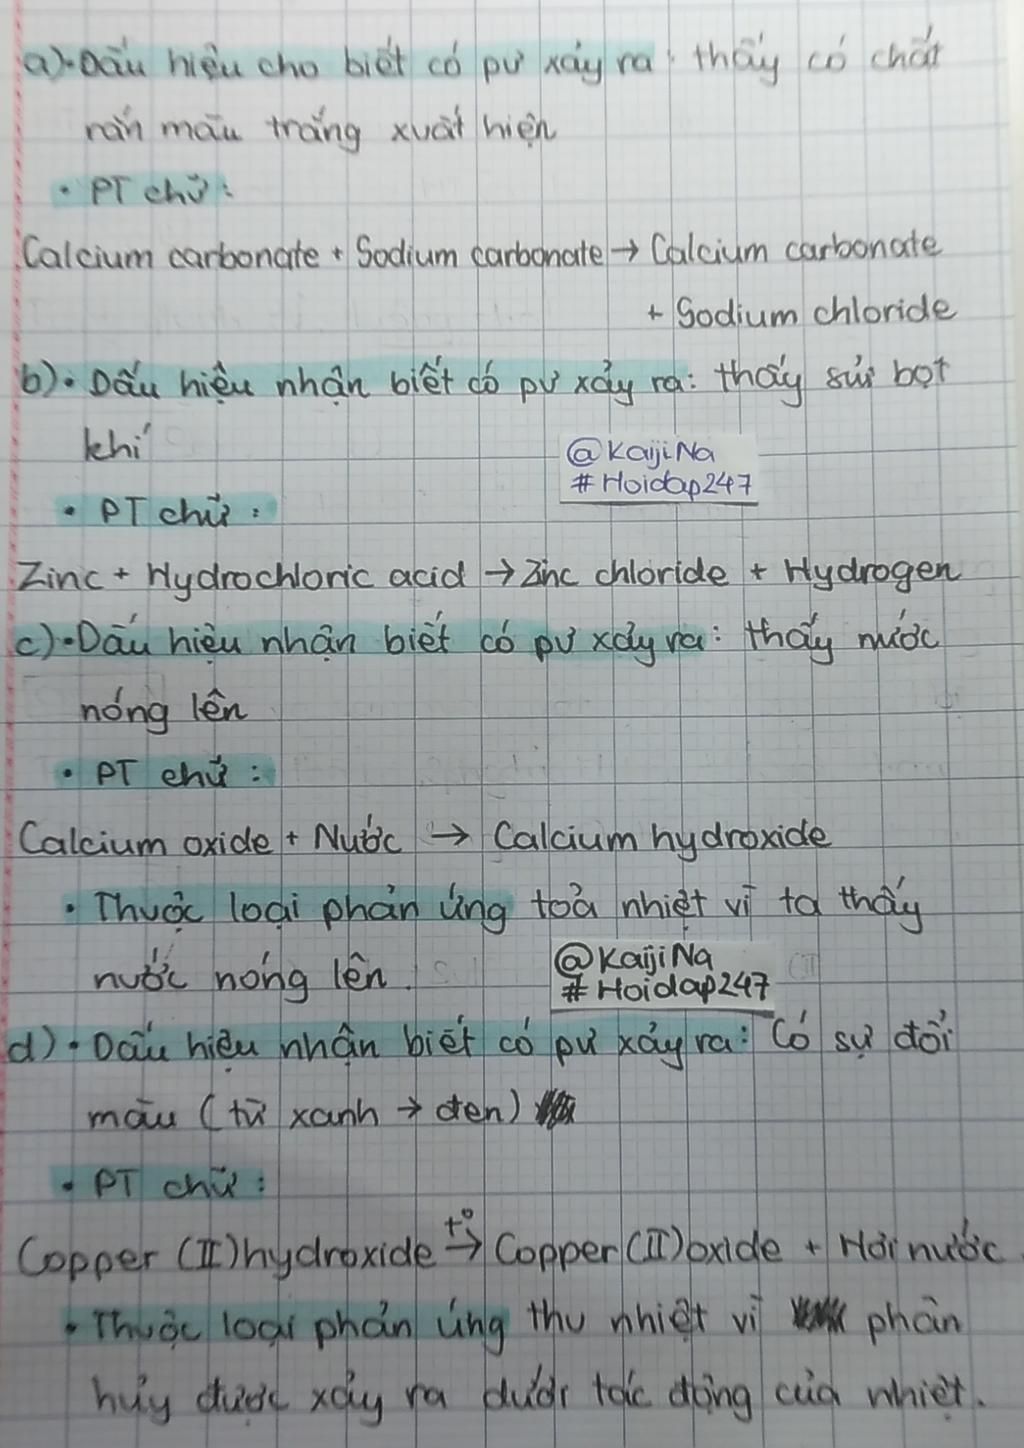 a)• Dấu hiệu cho biết có pư xảy ra : thấy có chất
rắn màu trắng xuất hiện
• PT chữ :
Calcium carbonate + Sodium carbonate → Calcium carbonate
+ Sodium chloride
b)• Dấu hiệu nhận biết có pư xảy ra : thấy sủi bọt
khí
@KaijiNa
#Hoidap247
• PT chữ :
Zinc + Hydrochloric acid → Zinc chloride + Hydrogen
c)• Dấu hiệu nhận biết có pư xảy ra : thấy nước
nóng lên
• PT chữ :
Calcium oxide + Nước → Calcium hydroxide
• Thuộc loại phản ứng toả nhiệt vì ta thấy
nước nóng lên.
@KaijiNa
#Hoidap247
d)• Dấu hiệu nhận biết có pư xảy ra : Có sự đổi
màu (từ xanh → đen)
• PT chữ :
Copper (II) hydroxide t° → Copper (II) oxide + Hơi nước.
• Thuộc loại phản ứng thu nhiệt vì phân
hủy được xảy ra dưới tác động của nhiệt.